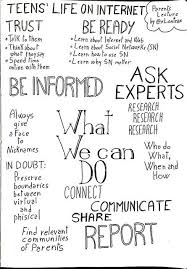 TEENS' LIFE ON INTERNET
Parents
Lecture
TRUST
BE READY
• Talk to them
• Think about
what they do
• Spend time
online with them
• Learn about Internet and Web
• Learn about Social Networks (SN)
• Learn how to use SN
• Learn why SN matter
BE INFORMED
ASK
EXPERTS
RESEARCH
RESEARCH
RESEARCH
Always
give
a Face
to
Nicknames
What
We can
DO
Who do
What,
When and
How
IN DOUBT:
Preserve
boundaries
between
virtual
and
phisical
CONNECT
COMMUNICATE
SHARE
REPORT
Find relevant
communities
of Parents